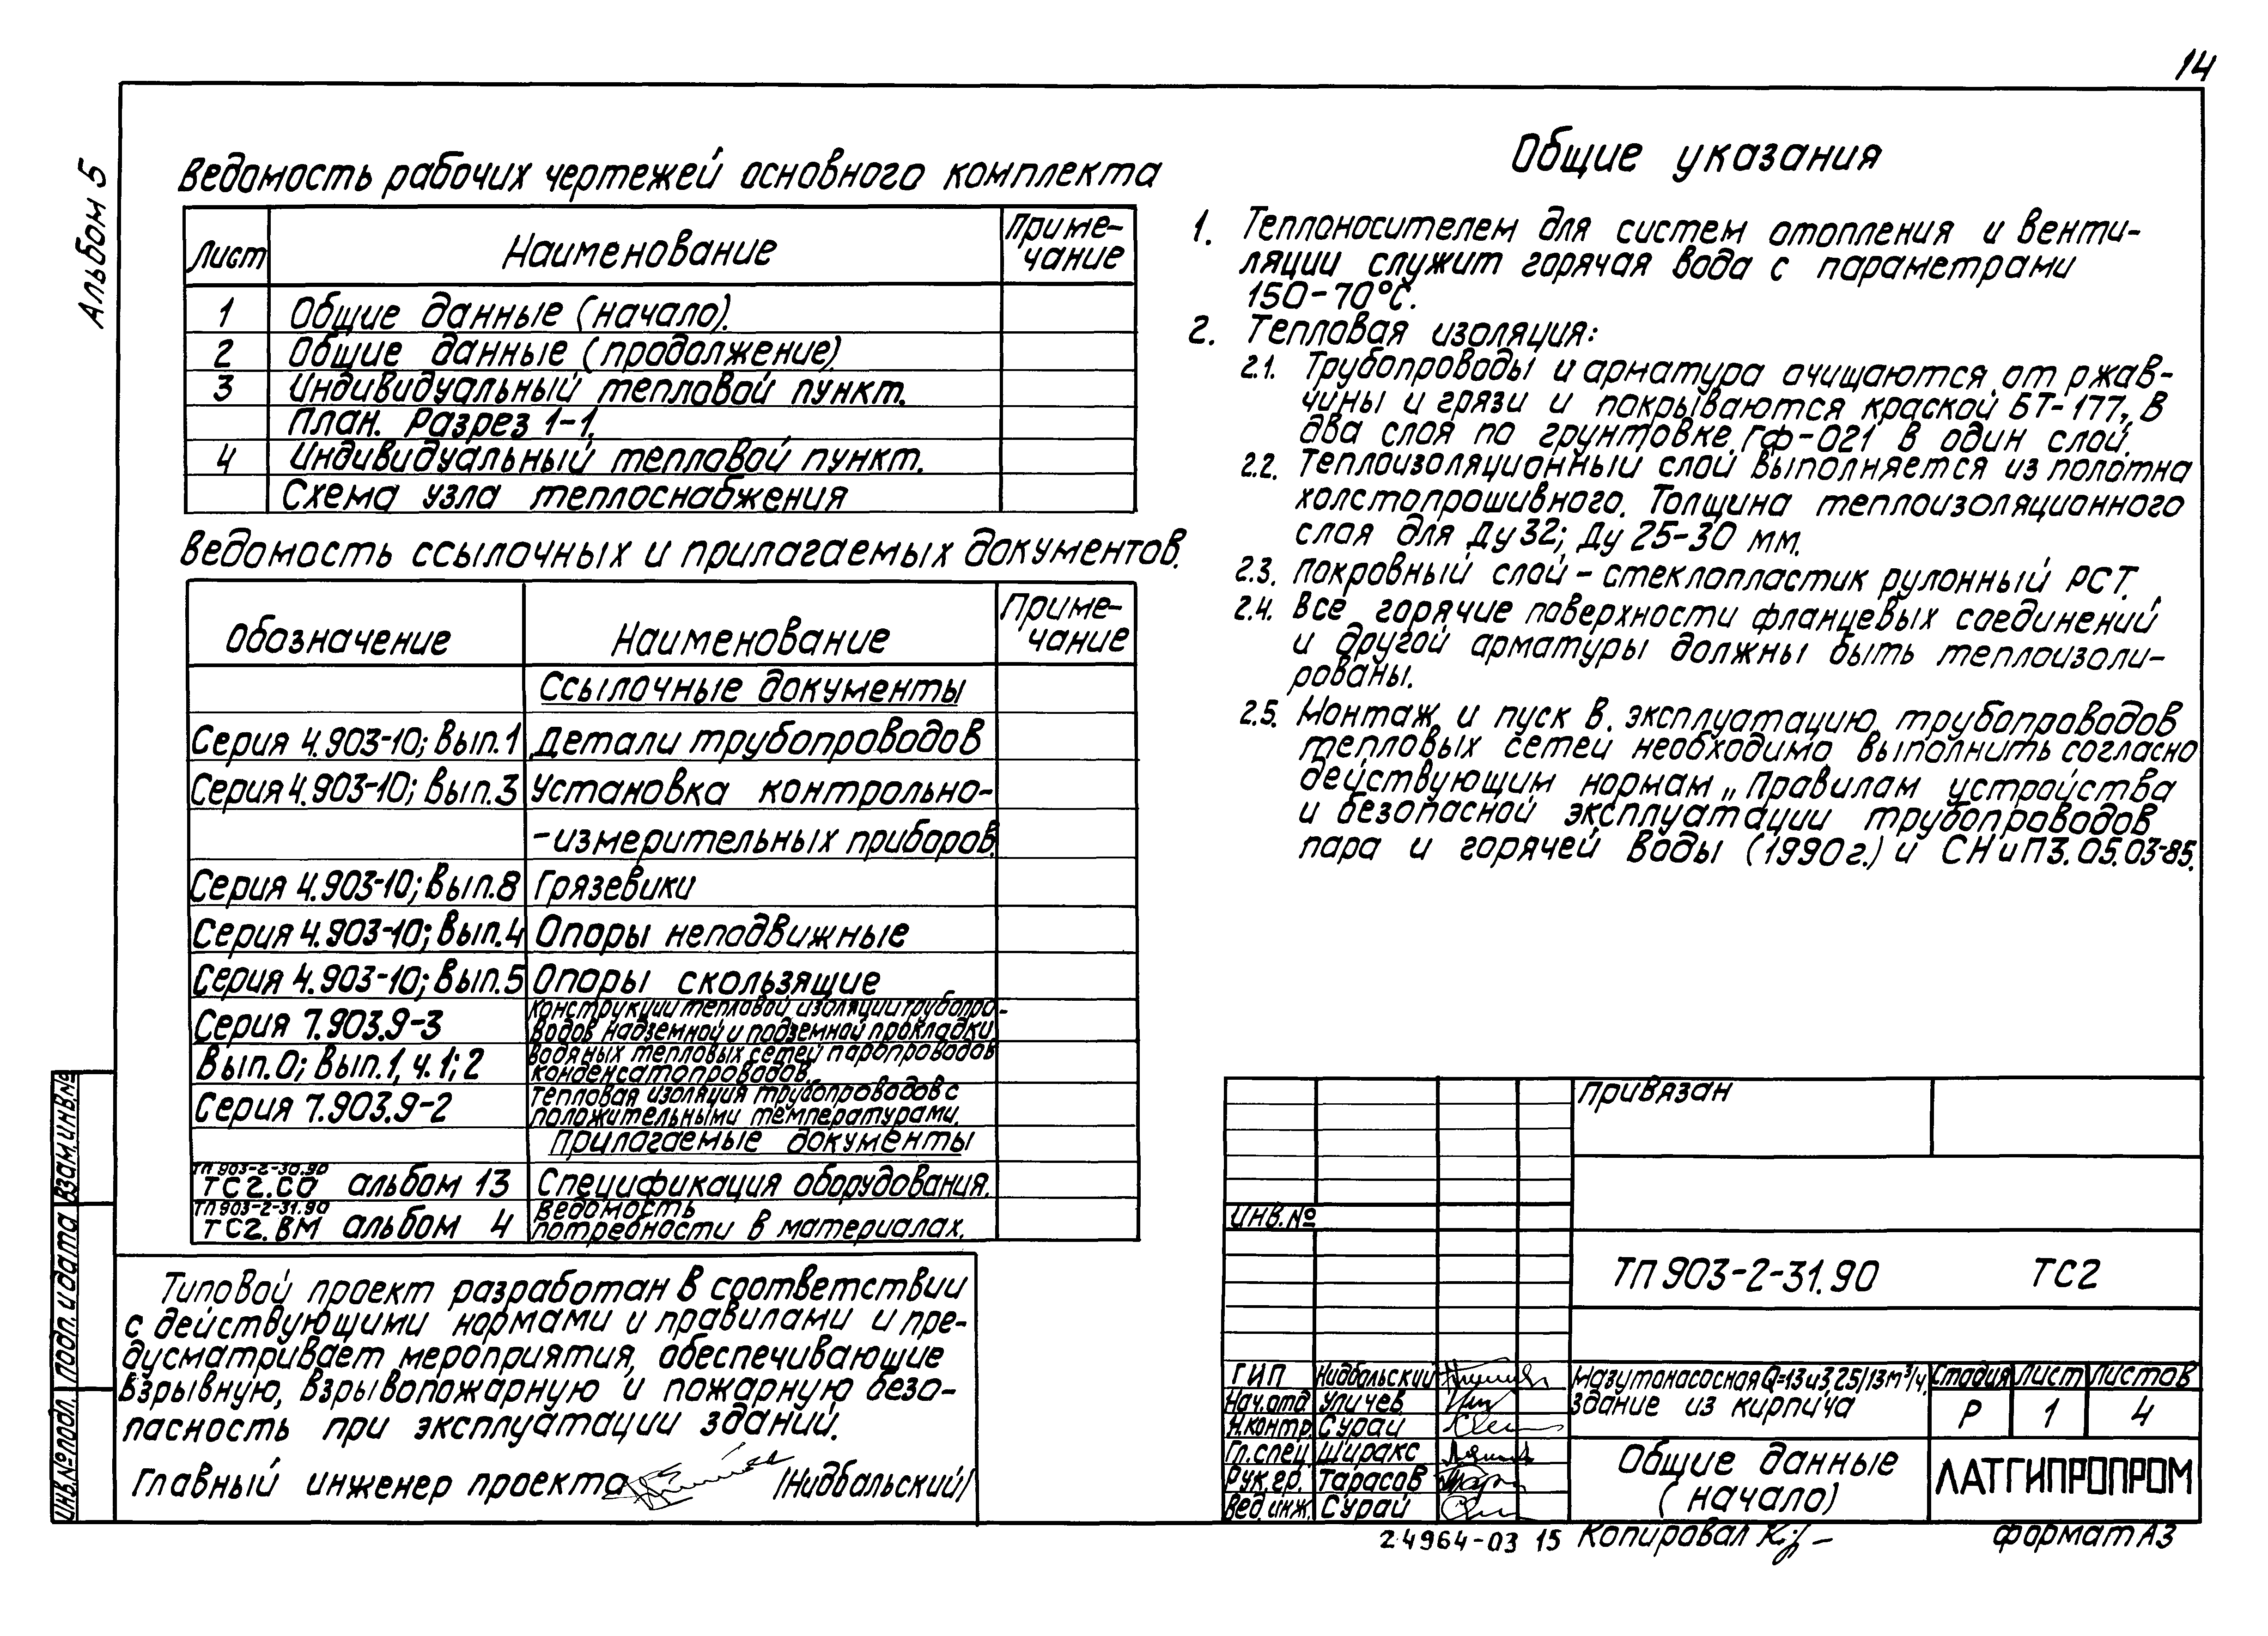 14
Альбом 5
Ведомость рабочих чертежей основного комплекта
Лист Наименование Приме-
чание
1 Общие данные (начало).
2 Общие данные (продолжение)
3 Индивидуальный тепловой пункт.
План. Разрез 1-1.
4 Индивидуальный тепловой пункт.
Схема узла теплоснабжения
Ведомость ссылочных и прилагаемых документов.
Обозначение Наименование Приме-
чание
Ссылочные документы
Серия 4.903-10; Вып.1 Детали трубопроводов
Серия 4.903-10; Вып.3 Установка контрольно-
-измерительных приборов.
Серия 4.903-10; Вып.8 Грязевики
Серия 4.903-10; Вып.4 Опоры неподвижные
Серия 4.903-10; Вып.5 Опоры скользящие
Серия 7.903.9-3 Конструкции тепловой изоляции трубопро-
водов надземной и подземной прокладки
Вып.0; Вып.1, ч.1; 2 водяных тепловых сетей паропроводов
конденсатопроводов.
Серия 7.903.9-2 Тепловая изоляция трубопроводов с
положительными температурами.
Прилагаемые документы
ТП 903-2-30.90
ТС2.СО альбом 13 Спецификация оборудования.
ТП 903-2-31.90
ТС2.ВМ альбом 4 Ведомость
потребности в материалах.
Типовой проект разработан в соответствии
с действующими нормами и правилами и пре-
дусматривает мероприятия, обеспечивающие
взрывную, взрывопожарную и пожарную безо-
пасность при эксплуатации зданий.
Главный инженер проекта /Нидбальский/
Общие указания
1. Теплоносителем для систем отопления и венти-
ляции служит горячая вода с параметрами
150-70°С.
2. Тепловая изоляция:
2.1. Трубопроводы и арматура очищаются от ржав-
чины и грязи и покрываются краской БТ-177, в
два слоя по грунтовке ГФ-021 в один слой.
2.2. Теплоизоляционный слой выполняется из полотна
холстопрошивного. Толщина теплоизоляционного
слоя для Ду 32; Ду 25-30 мм.
2.3. Покровный слой - стеклопластик рулонный РСТ.
2.4. Все горячие поверхности фланцевых соединений
и другой арматуры должны быть теплоизоли-
рованы.
2.5. Монтаж и пуск в эксплуатацию трубопроводов
тепловых сетей необходимо выполнить согласно
действующим нормам „Правилам устройства
и безопасной эксплуатации трубопроводов
пара и горячей воды (1990г.) и СНиП3.05.03-85.
Привязан
Инв.№
ТП 903-2-31.90 ТС2
ГИП Нидбальский
Нач.отд. Уличев
Н.контр. Сурай
Гл.спец. Ширакс
Рук.гр. Тарасов
Вед.инж. Сурай
Мазутонасосная Q=13 и 3,25/13м³/ч.
Здание из кирпича
Стадия Лист Листов
Р 1 4
Общие данные
(начало)
ЛАТГИПРОПРОМ
24964-03 15 Копировал
формат А3
Взам.инв.№
Подп. и дата
Инв.№ подл.